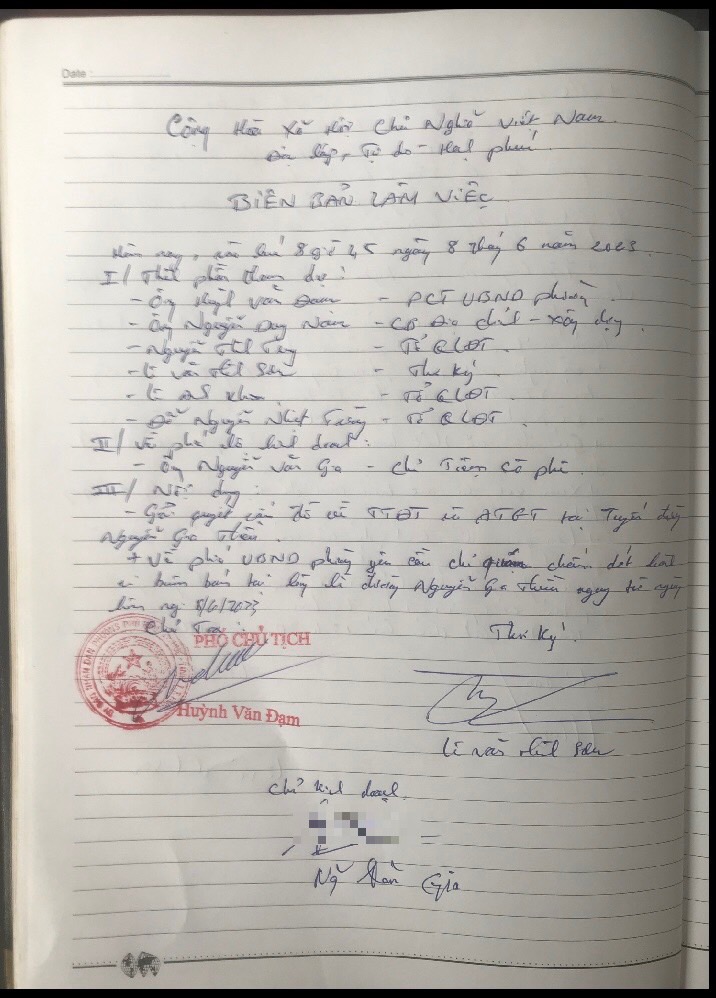 Date :
Cộng Hòa Xã Hội Chủ Nghĩa Việt Nam
Độc lập, Tự do - Hạnh phúc
BIÊN BẢN LÀM VIỆC
Hôm nay, vào lúc 8 giờ 45 ngày 8 tháng 6 năm 2023.
I/ Thành phần tham dự :
- Ông Huỳnh Văn Đạm - PCT UBND phường
- Ông Nguyễn Duy - CB Địa chính - Xây dựng
- Nguyễn - Tổ QLĐT
- Lê Văn - Thư Ký
- Lê - Tổ QLĐT
- Đỗ Nguyễn Nhật - Tổ QLĐT
II/ Về phía hộ kinh doanh :
- Ông Nguyễn Văn Gia - Chủ Tiệm cà phê
III/ Nội dung :
- Giải quyết vấn đề về TTĐT và ATGT tại Tuyến đường
Nguyễn Gia Thiều.
+ Về phía UBND phường yêu cầu chủ quán chấm dứt
buôn bán tại lòng lề đường Nguyễn Gia Thiều ngay từ ngày
hôm nay 8/6/2023
Chủ Tọa Thư Ký
PHÓ CHỦ TỊCH
Huỳnh Văn Đạm
Lê Văn
Chủ kinh doanh
Ng Văn Gia